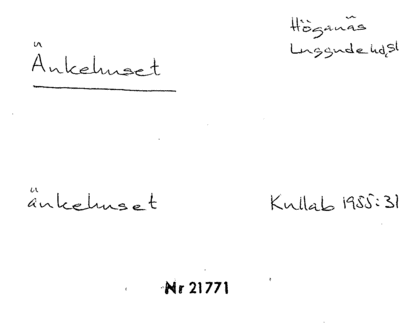 Änkehuset
Höganäs
Luggude hd, Sk
änkehuset
Kullab 1955:31
Nr 21771